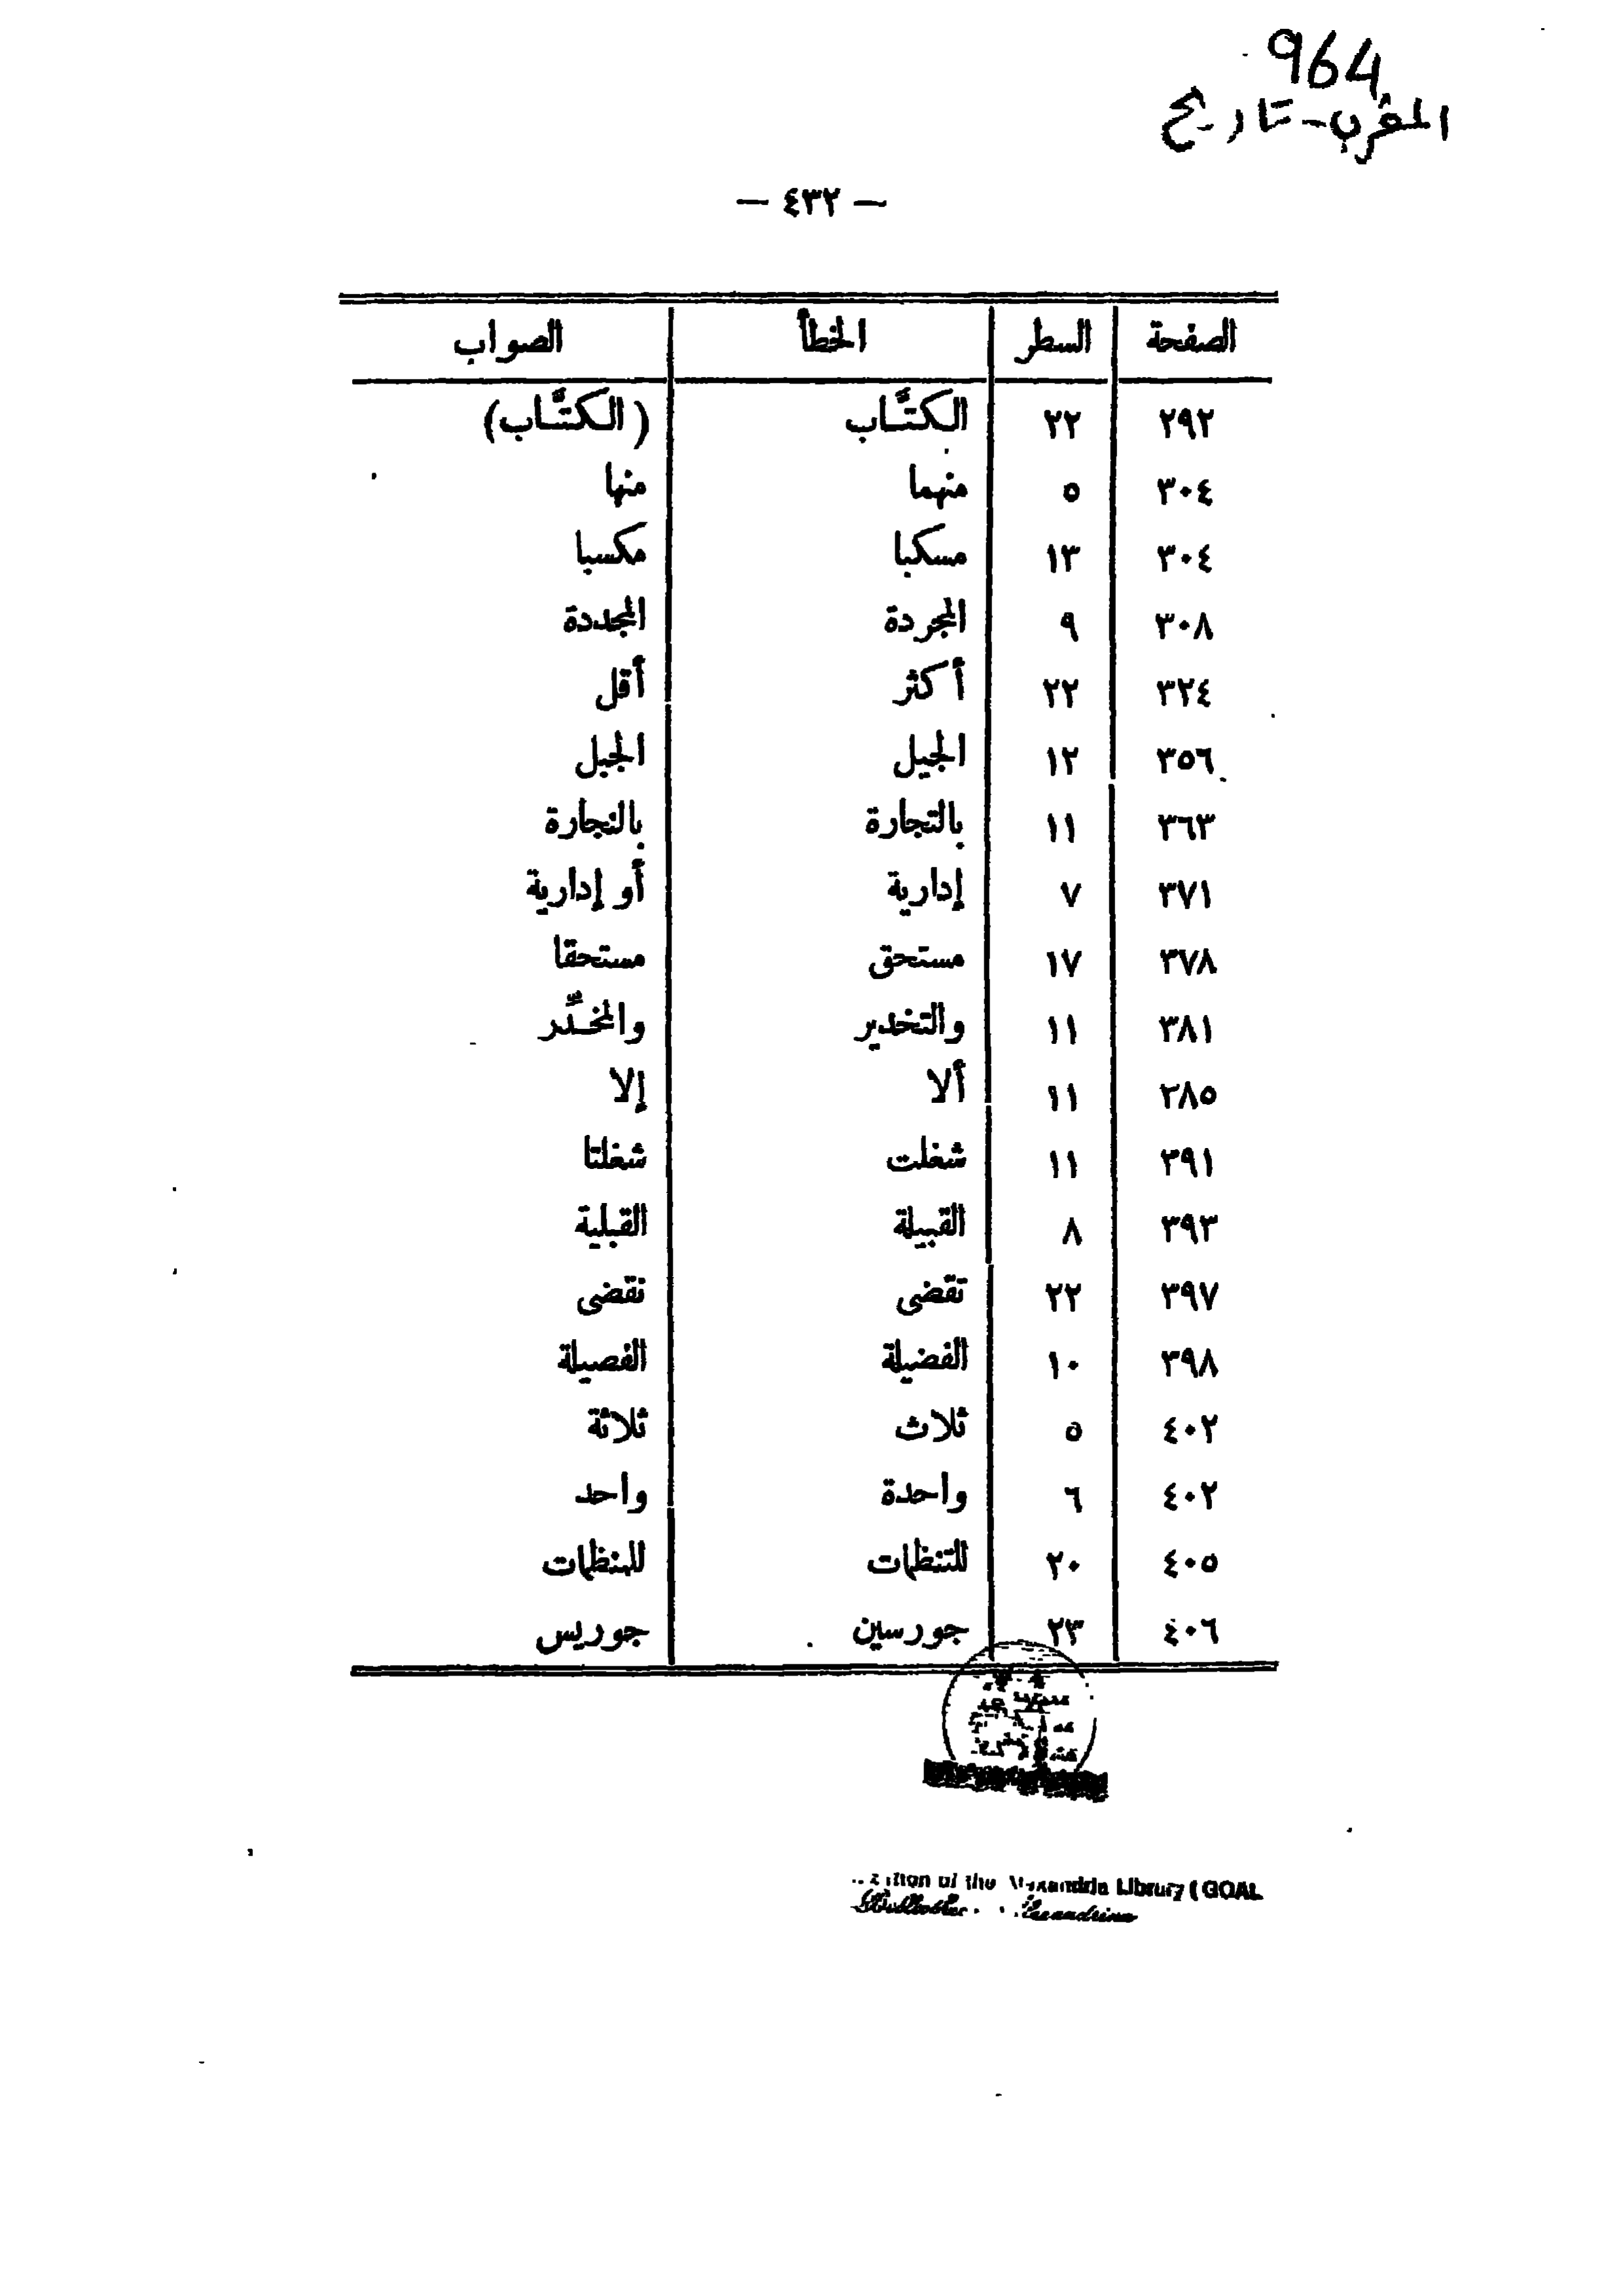 964
المغرب - تاريخ
— ٤٣٢ —
الصفحة السطر الخطأ الصواب
٢٩٢ ٢٢ الكتَّاب (الكتَّاب)
٣٠٤ ٥ منهما منها
٣٠٤ ١٣ مسكبا مكسبا
٣٠٨ ٩ المجردة المجددة
٣٢٤ ٢٢ أكثر أقل
٣٥٦ ١٢ الجيل الجبل
٣٦٣ ١١ بالتجارة بالنجارة
٣٧١ ٧ إدارية أو إدارية
٣٧٨ ١٧ مستحق مستحقا
٣٨١ ١١ والتخدير والمخدِّر
٢٨٥ ١١ ألا إلا
٣٩١ ١١ شغلت شغلتا
٣٩٣ ٨ القبيلة القبلية
٣٩٧ ٢٢ تقضى نقضى
٣٩٨ ١٠ الفضيلة الفصيلة
٤٠٢ ٥ ثلاث ثلاثة
٤٠٢ ٦ واحدة واحد
٤٠٥ ٢٠ للتنظمات للمنظمات
٤٠٦ ٢٣ جورسين جوريس
of the Alexandria Library ( GOAL